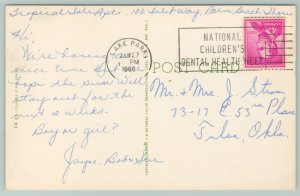 Tropical Isle Apt 106 Inlet Way, Palm Beach Shores
Hi,
We're having
nice time
hope the sun will
stay out for the
next 2 wks.
Boy or girl?
Jayne, Bob &
LAKE PARK
JAN 27
PM
1966
NATIONAL
CHILDREN'S
DENTAL HEALTH WEEK
POST CARD
Mr & Mrs J Strom
73-17 E 53rd Place
Tulsa, Okla.